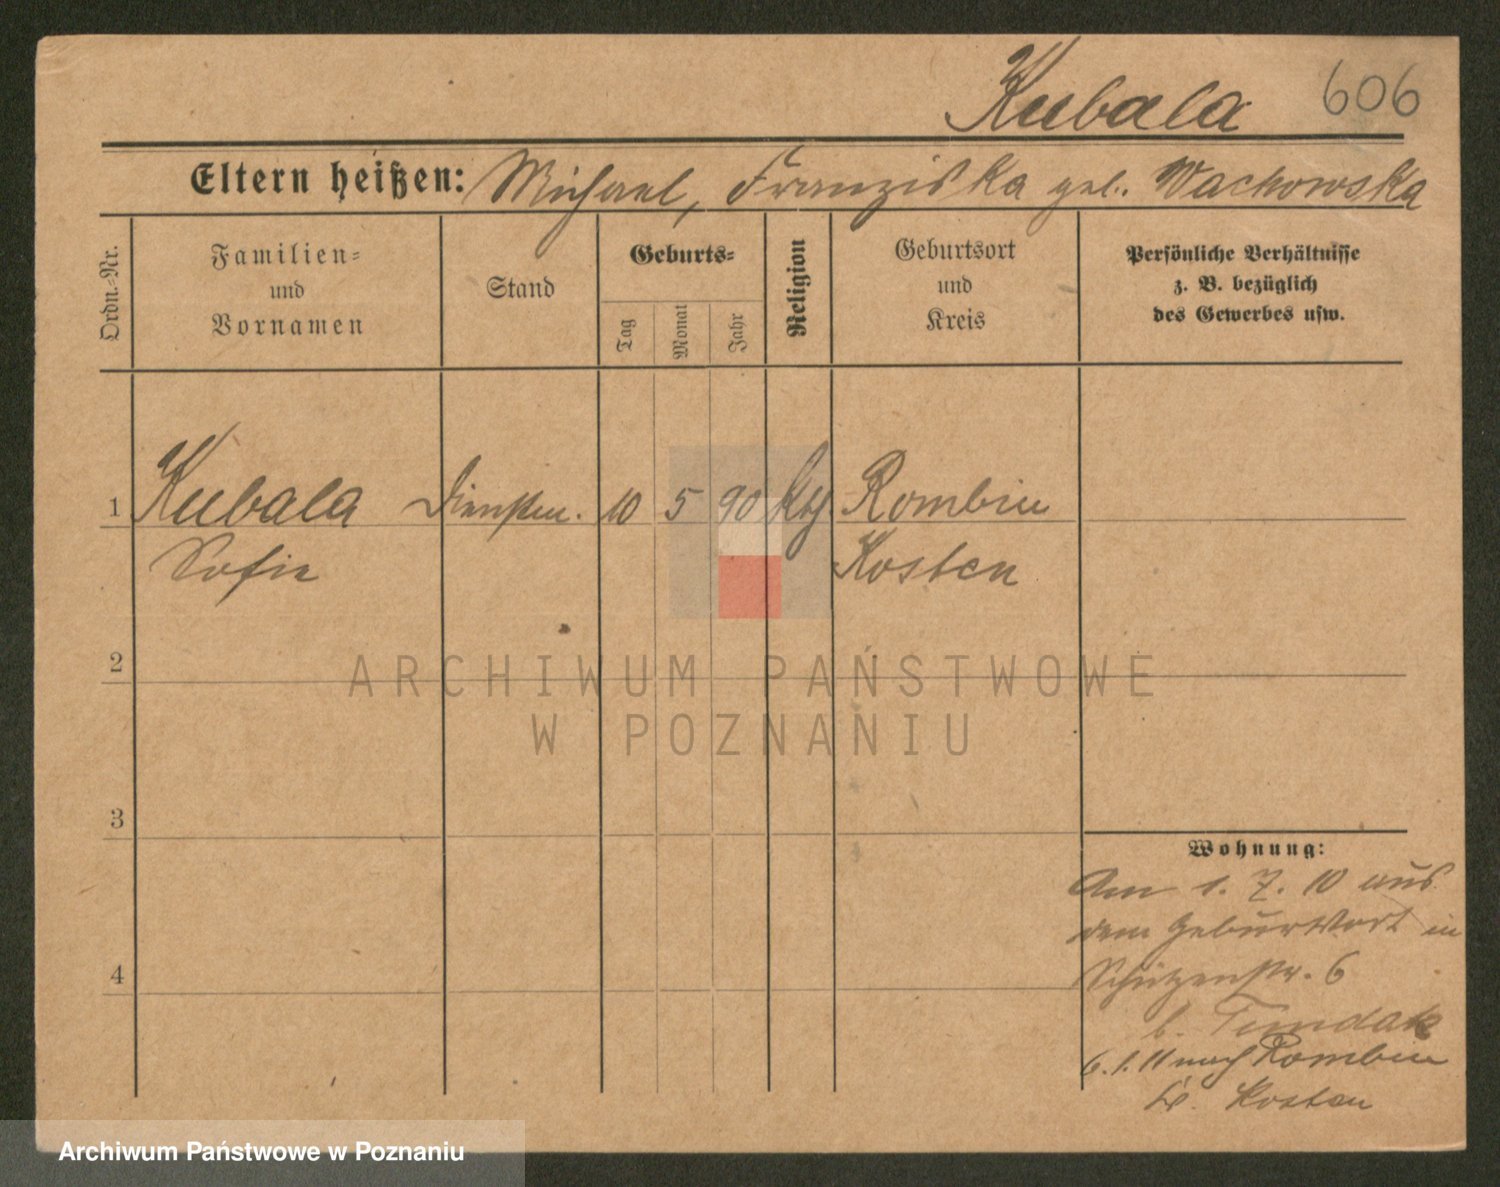 Kubala 606
Eltern heißen: Michael, Franziska geb. Wachowska
Ordn.-Nr.
Familien-
und
Vornamen
Stand
Geburts-
Tag
Monat
Jahr
Religion
Geburtsort
und
Kreis
Persönliche Verhältnisse
z. B. bezüglich
des Gewerbes usw.
1 Kubala Dienstm. 10 5 90 kth. Rombin
Sofie Kosten
2
3
4
Wohnung:
Am 1. 7. 10 aus
dem Geburtsort in
Schützenstr. 6
b. Tundak
6. 1. 11 nach Rombin
Kr. Kosten
ARCHIWUM PAŃSTWOWE
W POZNANIU
Archiwum Państwowe w Poznaniu